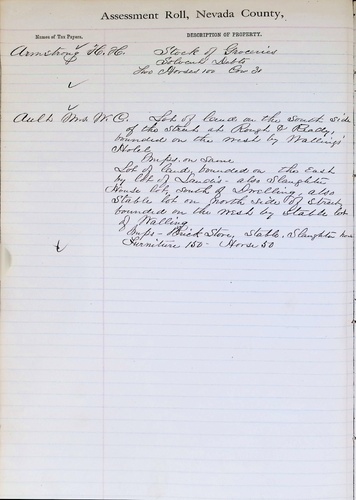 Assessment Roll, Nevada County,
Names of Tax Payers. DESCRIPTION OF PROPERTY.
Armstrong H. H. Stock of Groceries
Solvent Debts
Two Horses 100 Cow 30
Ault Mrs W. C. Lot of land on the South side
of the Street at Rough & Ready,
bounded on the West by Wallings
Hotel
Imps. on Same
Lot of land, bounded on the East
by of Landis - also Slaughter
House lot, South of Dwelling, also
Stable lot on North side of Street
bounded on the West by Stable lot
of Walling
Imps - Brick Store, Stable, Slaughter house
Furniture 150 - Horse 50